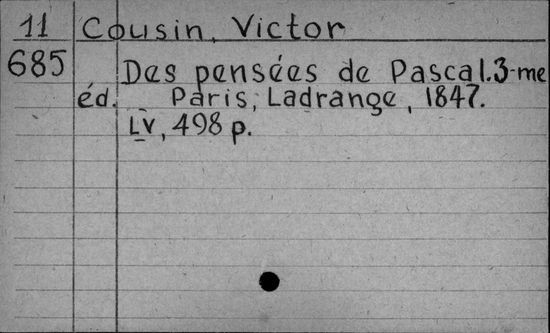 11 Cousin, Victor
685 Des pensées de Pascal. 3-me
éd. Paris, Ladrange, 1847.
LV, 498 p.